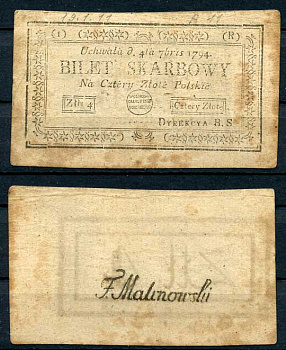 (1) (R)
Uchwałą d. 4ta 7bris 1794.
BILET SKARBOWY
Na Cztéry Złote Polskie
Złł: 4 Cztéry Złote
DYREKCYA B. S
F. Malinowski